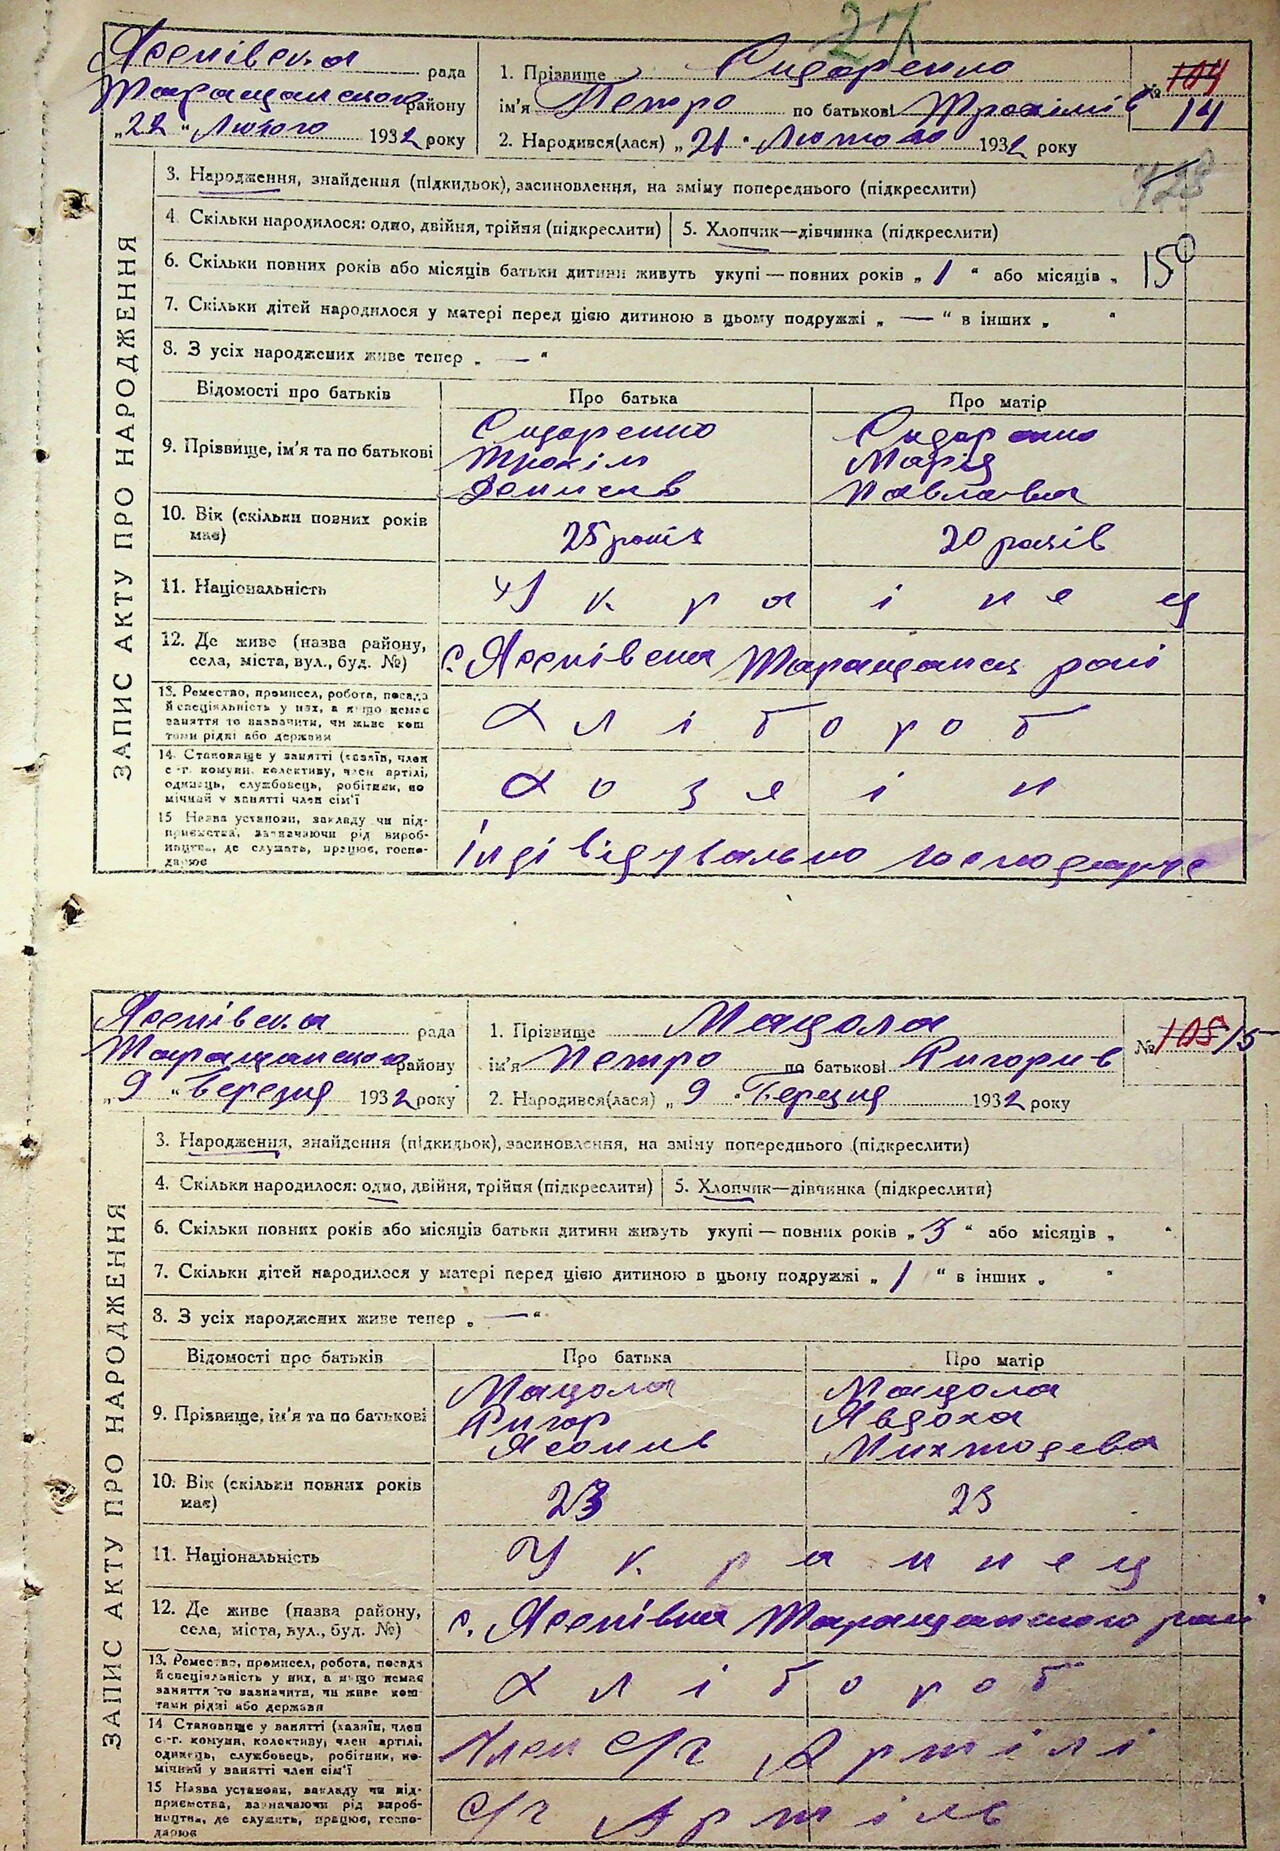 27
Ясенівська рада
Таращанського району
„22" Лютого 1932 року
1. Прізвище Сидоренко
ім'я Петро по батькові Трохимів
2. Народився(лася) „21" Лютого 1932 року
№ 104
14
ЗАПИС АКТУ ПРО НАРОДЖЕННЯ
3. Народження, знайдення (підкидьок), засиновлення, на зміну попереднього (підкреслити)
4. Скільки народилося: одно, двійня, трійня (підкреслити) 5. Хлопчик—дівчинка (підкреслити)
6. Скільки повних років або місяців батьки дитини живуть укупі — повних років „1" або місяців „
150
7. Скільки дітей народилося у матері перед цією дитиною в цьому подружжі „—" в інших „ "
8. З усіх народжених живе тепер „—"
Відомості про батьків Про батька Про матір
9. Прізвище, ім'я та по батькові
Сидоренко Сидоренко
Трохім Марія
Павлавна
10. Вік (скільки повних років має)
25 років 20 років
11. Національність Українец
12. Де живе (назва району, села, міста, вул., буд. №)
с. Ясенівська Таращанськ раі
13. Ремество, промисел, робота, посада й спеціяльність у них, а якщо немає заняття то назначити, чи живе коштами рідні або держави
Хлібороб
14. Становище у занятті (хазяїн, член с.-г. комуни, колективу, член артілі, одинець, службовець, робітник, помічний у занятті член сім'ї
Хозяін
15 Назва установи, закладу чи підприємства, зазначаючи рід виробництва, де служать, працює, господарює
Індівідувально господарує
Ясенівська рада
Таращанського району
„9" Березня 1932 року
1. Прізвище Мацола
ім'я Петро по батькові Григорив
2. Народився(лася) „9" Березня 1932 року
№ 105 15
ЗАПИС АКТУ ПРО НАРОДЖЕННЯ
3. Народження, знайдення (підкидьок), засиновлення, на зміну попереднього (підкреслити)
4. Скільки народилося: одно, двійня, трійня (підкреслити) 5. Хлопчик—дівчинка (підкреслити)
6. Скільки повних років або місяців батьки дитини живуть укупі — повних років „3" або місяців „ "
7. Скільки дітей народилося у матері перед цією дитиною в цьому подружжі „1" в інших „ "
8. З усіх народжених живе тепер „—"
Відомості про батьків Про батька Про матір
9. Прізвище, ім'я та по батькові
Мацола Мацола
Григор Явдоха
10. Вік (скільки повних років має)
23 23
11. Національність Украинец
12. Де живе (назва району, села, міста, вул., буд. №)
с. Ясенівка Таращанского раі
13. Ремество, промисел, робота, посада й спеціяльність у них, а якщо немає заняття то вазначити, чи живе коштами рідні або держави
Хлібороб
14 Становище у занятті (хазяїн, член с.-г. комуни, колективу, член артілі, одинець, службовець, робітник, помічний у занятті член сім'ї
Член С/г Артілі
15 Назва установи, закладу чи підприємства, вазначаючи рід виробництва, де служить, працює, господарює
С/г Артіль